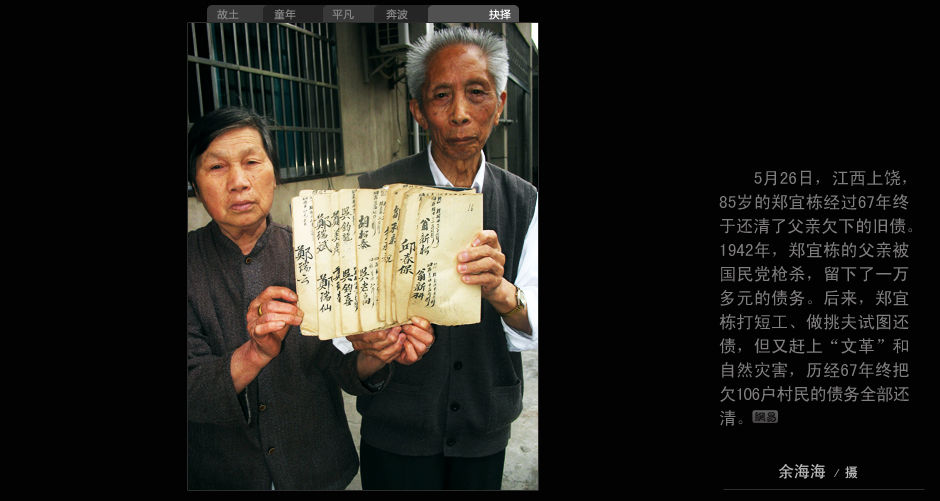 故土 童年 平凡 奔波 抉择
5月26日，江西上饶，
85岁的郑宜栋经过67年终
于还清了父亲欠下的旧债。
1942年，郑宜栋的父亲被
国民党枪杀，留下了一万
多元的债务。后来，郑宜
栋打短工、做挑夫试图还
债，但又赶上“文革”和
自然灾害，历经67年终把
欠106户村民的债务全部还
清。網易
余海海 / 摄
鄭瑞云
鄭瑞斌
鄭瑞仙
邱春保
翁新松